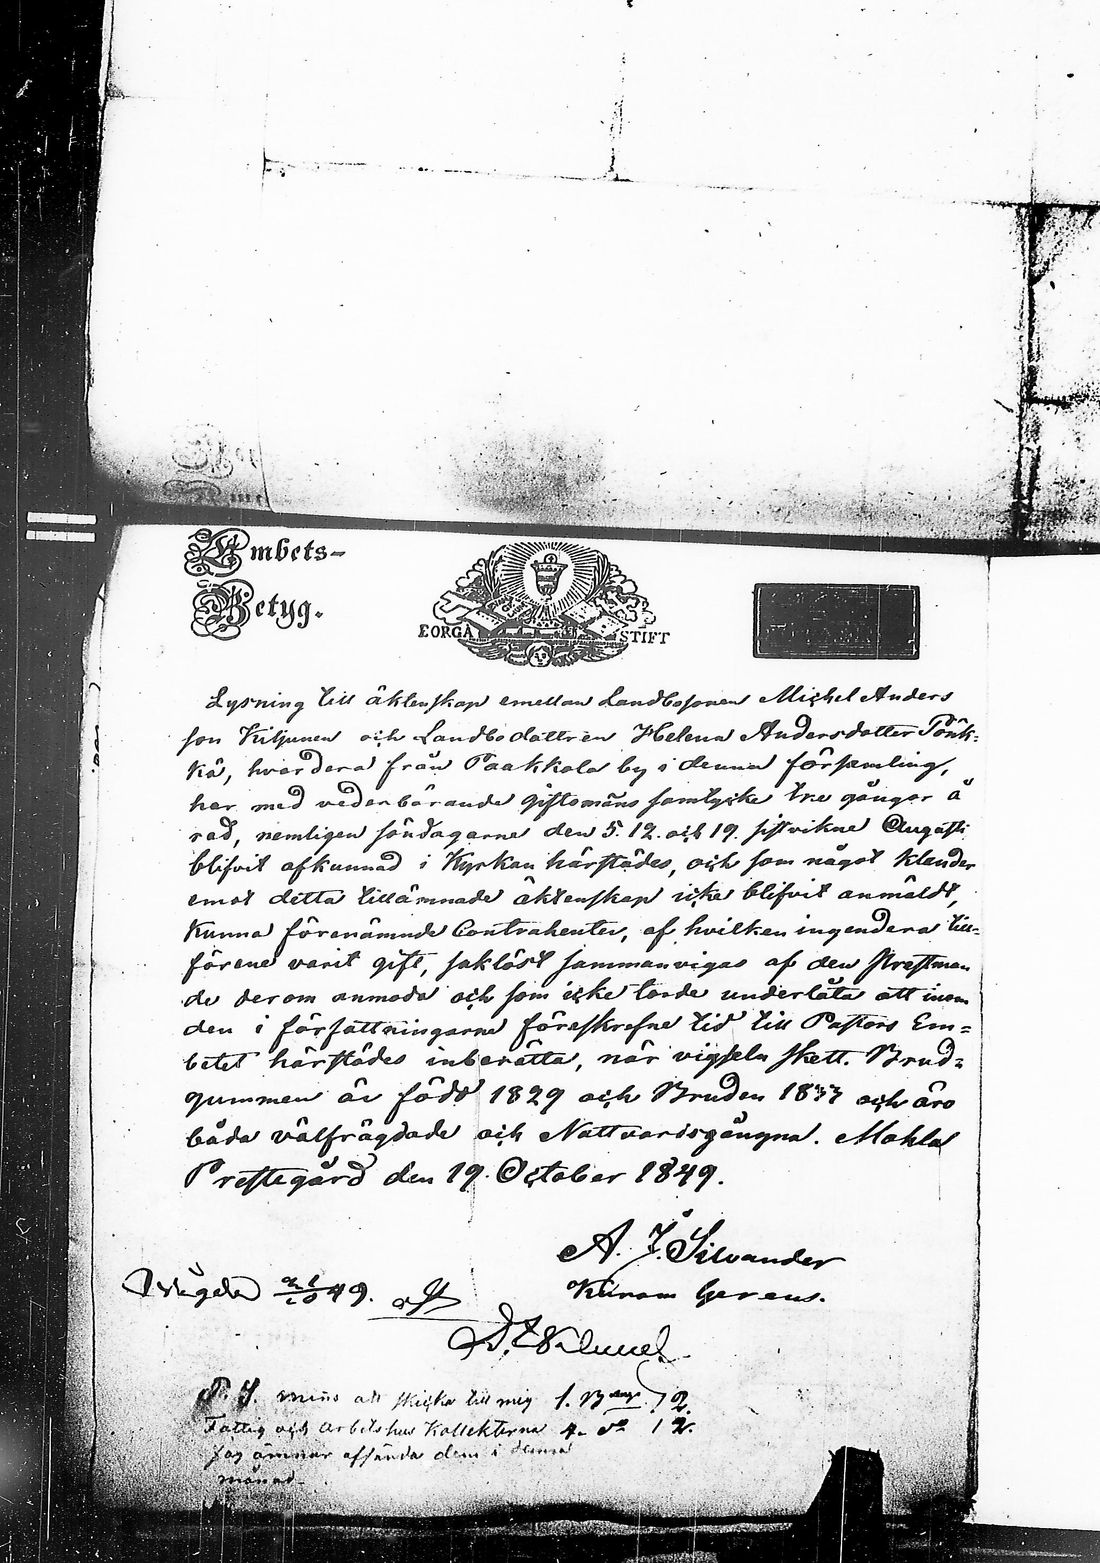 Embets-
Betyg.
BORGÅ STIFT
Lysning till äktenskap emellan Landbosonen Michel Anders
son Kiljunen och Landbodottren Helena Andersdotter Pönk-
kä, hvardera från Paakkola by i denna församling,
har med vederbörande Giftomäns samtycke tre gångor å
rad, nemligen söndagarne den 5. 12. och 19. sistvikne Augusti
blifvit afkunnad i Kyrkan härstädes, och som något klander
emot detta tillämnade äktenskap icke blifvit anmäldt,
kunna förenämnde Contrahenter, af hvilken ingendera till-
förene varit gift, saklöst sammanvigas af den Prestman
de derom anmoda och som icke torde underlåta att inom
den i författningarne föreskrefne tid till Pastors Em=
betet härstädes inberätta, når vigseln skett. Brud=
gummen är född 1829 och Bruden 1833 och äro
båda välfrägdade och Nattvardsgångna. Mohla
Prestegård den 19. October 1849.
A. J. Silvander
Küram Gerens.
Wigde 21/10 49.
P. S. minns att skicka till mig 1. 12.
Fattig och Arbetshus Kollekterna 4. do 12.
Jag ämnar afsända dem i denna
månad.